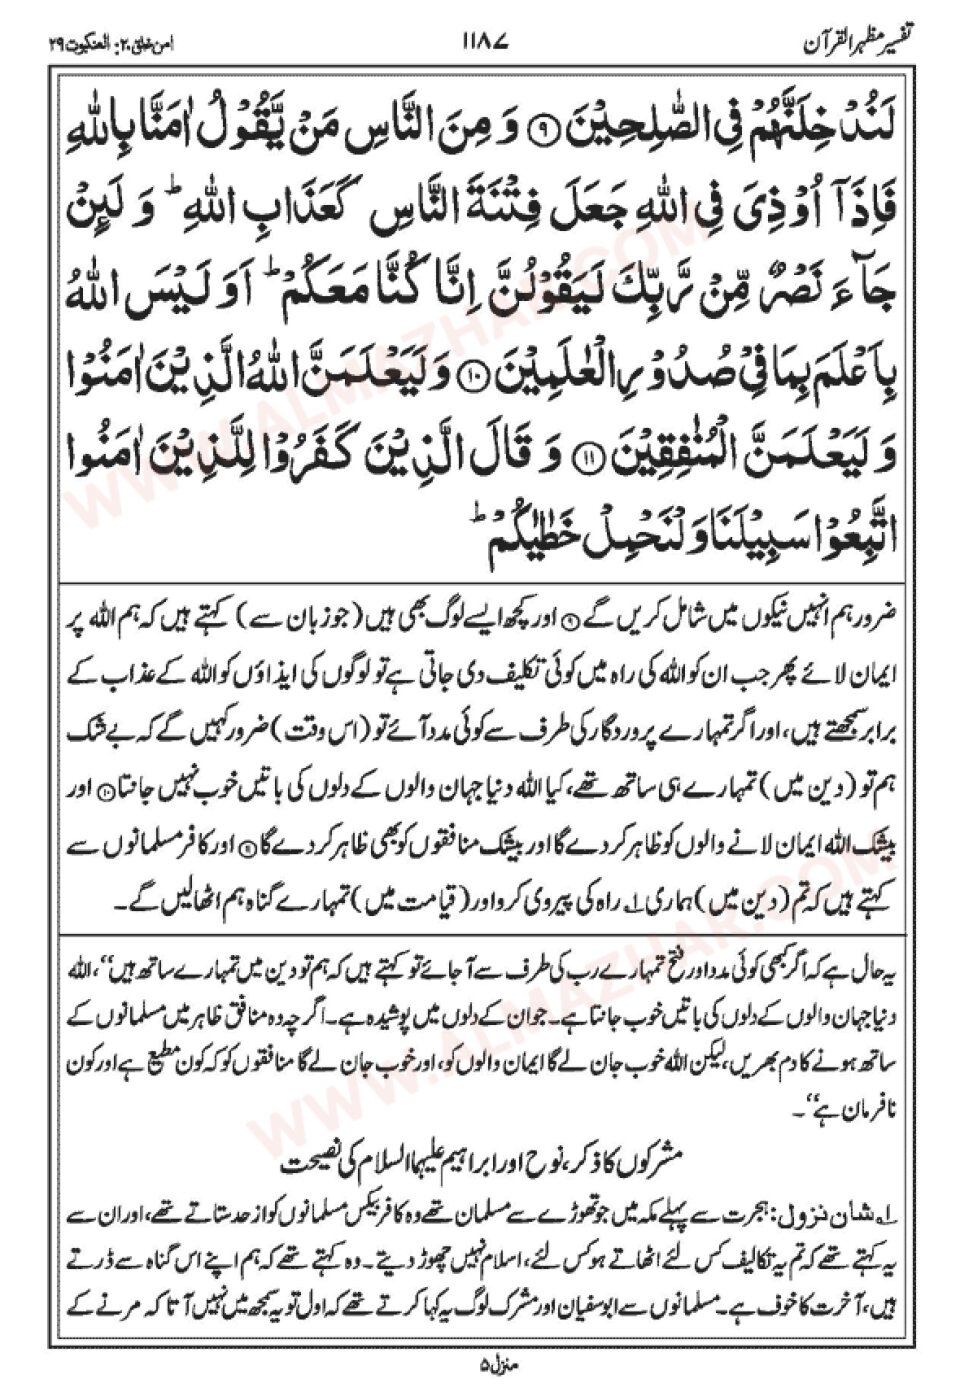 تفسیر مظہر القرآن
۱۱۸۷
امن خلق ۲۰: العنکبوت ۲۹
لَنُدْخِلَنَّهُمْ فِی الصّٰلِحِیْنَ ۹ وَ مِنَ النَّاسِ مَنْ یَّقُوْلُ اٰمَنَّا بِاللّٰهِ
فَاِذَاۤ اُوْذِیَ فِی اللّٰهِ جَعَلَ فِتْنَةَ النَّاسِ كَعَذَابِ اللّٰهِ ؕ وَ لَىِٕنْ
جَآءَ نَصْرٌ مِّنْ رَّبِّكَ لَیَقُوْلُنَّ اِنَّا كُنَّا مَعَكُمْ ؕ اَوَ لَیْسَ اللّٰهُ
بِاَعْلَمَ بِمَا فِیْ صُدُوْرِ الْعٰلَمِیْنَ ۱۰ وَ لَیَعْلَمَنَّ اللّٰهُ الَّذِیْنَ اٰمَنُوْا
وَ لَیَعْلَمَنَّ الْمُنٰفِقِیْنَ ۱۱ وَ قَالَ الَّذِیْنَ كَفَرُوْا لِلَّذِیْنَ اٰمَنُوا
اتَّبِعُوْا سَبِیْلَنَا وَ لْنَحْمِلْ خَطٰیٰكُمْ ؕ
ضرور ہم انہیں نیکوں میں شامل کریں گے ۹ اور کچھ ایسے لوگ بھی ہیں (جو زبان سے) کہتے ہیں کہ ہم اللہ پر
ایمان لائے پھر جب ان کو اللہ کی راہ میں کوئی تکلیف دی جاتی ہے تو لوگوں کی ایذاؤں کو اللہ کے عذاب کے
برابر سمجھتے ہیں، اور اگر تمہارے پروردگار کی طرف سے کوئی مدد آئے تو (اس وقت) ضرور کہیں گے کہ بے شک
ہم تو (دین میں) تمہارے ہی ساتھ تھے، کیا اللہ دنیا جہان والوں کے دلوں کی باتیں خوب نہیں جانتا ۱۰ اور
بیشک اللہ ایمان لانے والوں کو ظاہر کر دے گا اور بیشک منافقوں کو بھی ظاہر کر دے گا ۱۱ اور کافر مسلمانوں سے
کہتے ہیں کہ تم (دین میں) ہماری ۱؎ راہ کی پیروی کرو اور (قیامت میں) تمہارے گناہ ہم اٹھا لیں گے۔
یہ حال ہے کہ اگر کبھی کوئی مدد اور فتح تمہارے رب کی طرف سے آ جائے تو کہتے ہیں کہ ہم تو دین میں تمہارے ساتھ ہیں‘‘، اللہ
دنیا جہان والوں کے دلوں کی باتیں خوب جانتا ہے۔ جو ان کے دلوں میں پوشیدہ ہے۔ اگرچہ وہ منافق ظاہر میں مسلمانوں کے
ساتھ ہونے کا دم بھریں، لیکن اللہ خوب جان لے گا ایمان والوں کو، اور خوب جان لے گا منافقوں کو کہ کون مطیع ہے اور کون
نافرمان ہے‘‘۔
مشرکوں کا ذکر، نوح اور ابراہیم علیہما السلام کی نصیحت
۱؎ شان نزول: ہجرت سے پہلے مکہ میں جو تھوڑے سے مسلمان تھے وہ کافر بیکس مسلمانوں کو از حد ستاتے تھے، اور ان سے
یہ کہتے تھے کہ تم یہ تکالیف کس لئے اٹھاتے ہو کس لئے، اسلام نہیں چھوڑ دیتے۔ وہ کہتے تھے کہ ہم اپنے اس گناہ سے ڈرتے
ہیں، آخرت کا خوف ہے۔ مسلمانوں سے ابوسفیان اور مشرک لوگ یہ کہا کرتے تھے کہ اول تو یہ سمجھ میں نہیں آتا کہ مرنے کے
منزل ۵
WWW.ALMAZHAR.COM
WWW.ALMAZHAR.COM